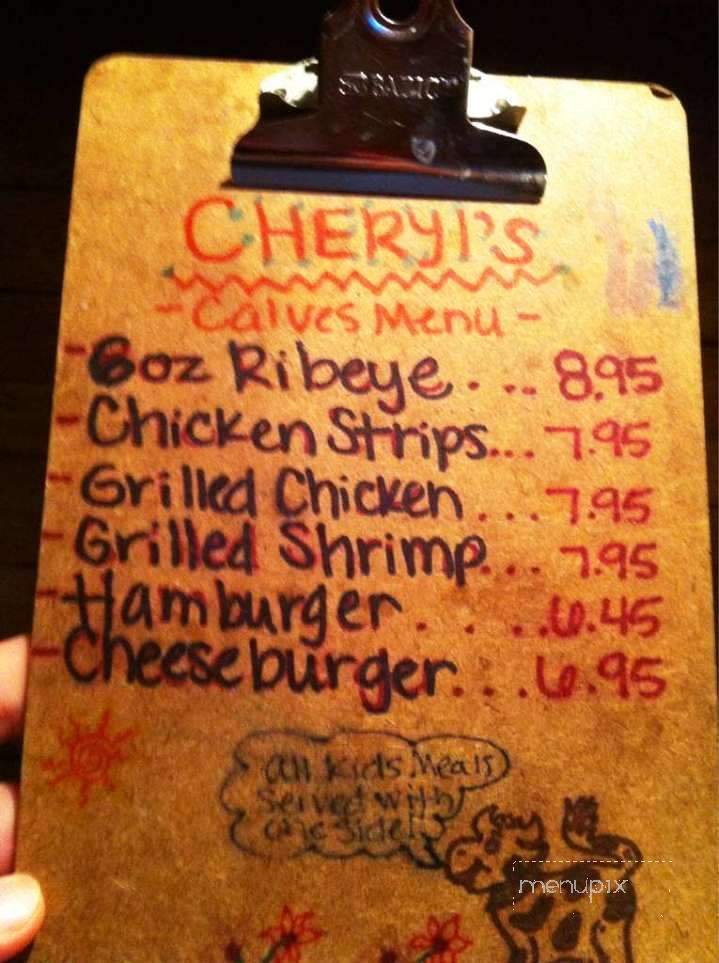 CHERYl'S
-Calves Menu-
-6oz Ribeye. . .. 8.95
-Chicken Strips.... 7.95
-Grilled Chicken . . . 7.95
-Grilled Shrimp. . . 7.95
-Hamburger . . . .. 6.45
-Cheeseburger. . . 6.95
all kids Meals
Served with
one side!
menupix